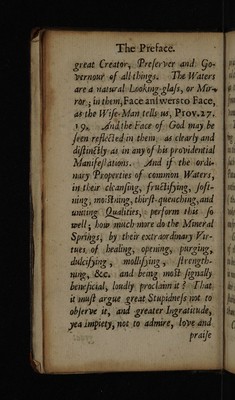 The Preface.
great Creator, Preserver and Go-
vernour of all things. The Waters
are a natural Looking-glass, or Mir-
ror; in them, Face answers to Face,
as the Wise-Man tells us, Prov. 27.
19. And the Face of God may be
seen reflected in them, as clearly and
distinctly as in any of his providential
Manifestations. And if the ordi-
nary Properties of common Waters,
in their cleansing, fructifying, sofi-
ning, moistning, thirst-quenching, and
uniting Qualities, perform this so
well; how much more do the Mineral
Springs, by their extraordinary Vir-
tues of healing, opening, purging,
dulcifying, mollifying, strength-
ning, &c. and being most signally
beneficial, loudly proclaim it? That
it must argue great Stupidness not to
observe it, and greater Ingratitude,
yea impiety, not to admire, love and
praise